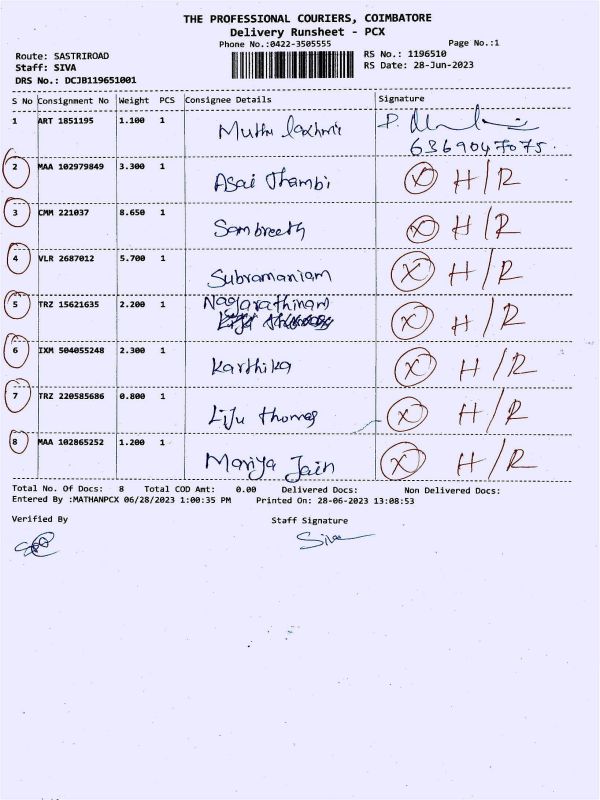 THE PROFESSIONAL COURIERS, COIMBATORE
Delivery Runsheet - PCX
Phone No.:0422-3505555
Page No.:1
Route: SASTRIROAD
RS No.: 1196510
Staff: SIVA
RS Date: 28-Jun-2023
DRS No.: DCJB119651001
S No Consignment No Weight PCS Consignee Details Signature
1 ART 1851195 1.100 1 Muthu laxhmi P.
6369047075.
2 MAA 102979849 3.300 1 Asai Thambi X H/R
3 CMM 221037 8.650 1 Sambreeth X H/R
4 VLR 2687012 5.700 1 Subramaniam X H/R
5 TRZ 15621635 2.200 1 Nagarathinam X H/R
6 IXM 504055248 2.300 1 Karthika X H/R
7 TRZ 220585686 0.800 1 Liju thomas X H/R
8 MAA 102865252 1.200 1 Mariya Jain X H/R
Total No. Of Docs: 8 Total COD Amt: 0.00 Delivered Docs: Non Delivered Docs:
Entered By :MATHANPCX 06/28/2023 1:00:35 PM Printed On: 28-06-2023 13:08:53
Verified By Staff Signature
Siva